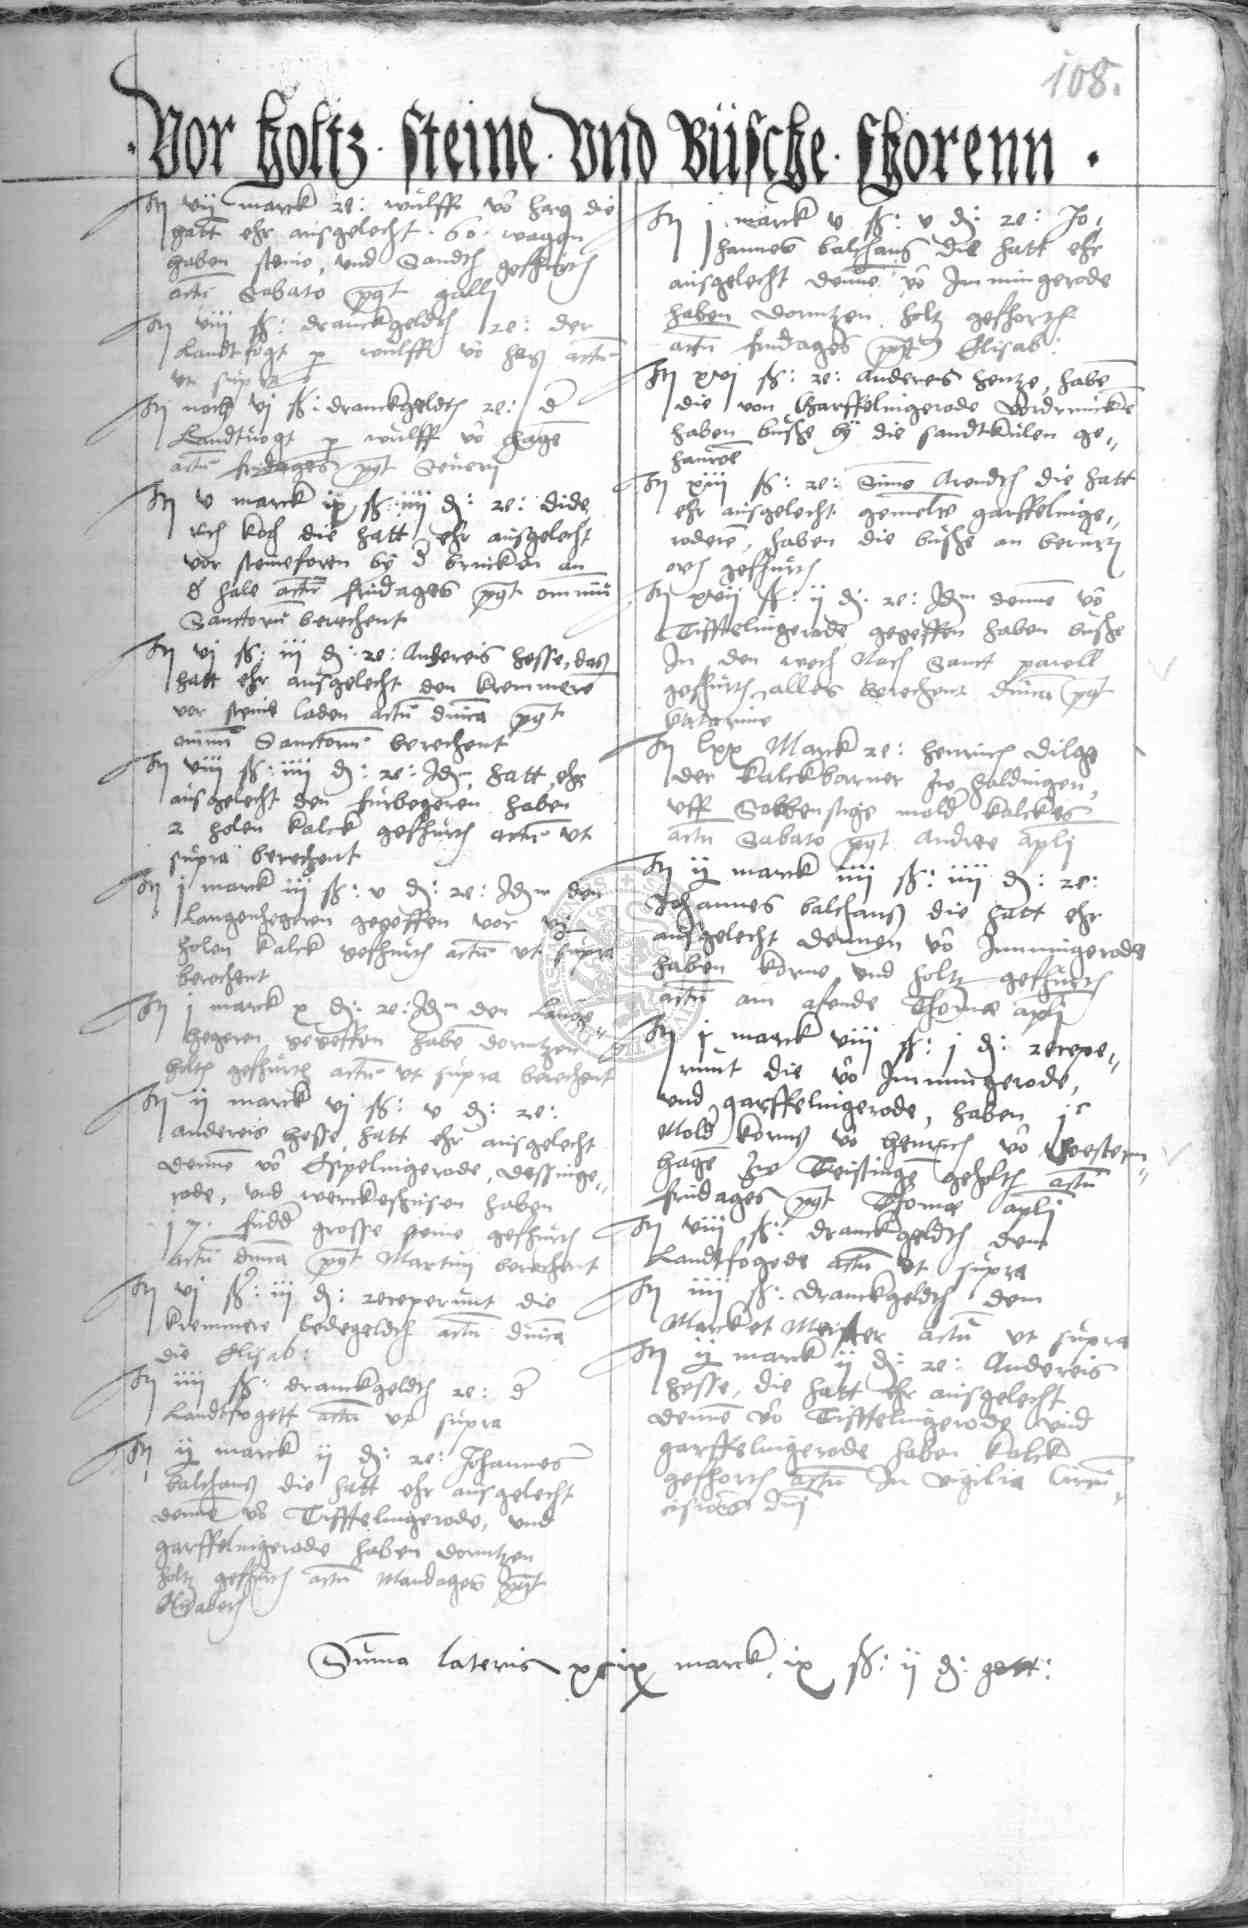 108.
Vor holtz · steine · vnd Büsche · fhorenn ·
It vij marck re: wulff vō hag die
hatt ehr ausgelecht · 60 · wagen
haben steine, vnd Sandth gefhurth
actū Sabato pꝰt galli
It viij ß: dranckgeldth re: der
Landtfogt p wulff vō hag actū
vt supra
It noch vj ß: dranckgeldth re: d
Landtuogt p wulff vō hage
actū fridages pꝰt Seueri
It v marck ix ß iiij d: re: dide
rich koch die hatt ehr ausgelecht
vor steineforen by d brucken an
d hale actū fridages pꝰt omniū
Sanctorū berechent
It vj ß: iij d: re: Andereis hesse, das
hatt ehr ausgelecht den kremmere
vor steine laden actū dnica pꝰt
omniū Sanctorū berechent
It viij ß: iiij d: re: Idem hatt ehr
ausgelecht den furbegeren haben
2 holen kalck gefhurth actū vt
supra berechent
It j marck iij ß: v d: re: Idem den
Langenhegeren gegeffen vor vj
holen kalck gefhurth actū vt supra
berechent
It j marck x d: re: Idem den Lange
hegeren gegeffen habē dorntzen
holtz gefhurth actū vt supra berechent
It ij marck vj ß: v d: re:
andereis hesse hatt ehr ausgelecht
denne vō Espelingerode, dessinge„
rode, vnd werckeshusen haben
17 · fudd grosse steine gefhurth
actū dnica pꝰt Martini berechent
It vj ß: iij d: receperunt die
kremmere bedegeldth actū dnica
die Elisab:
It iiij ß: dranckgeldth re: d
Landtfogett actū vt supra
It ij marck ij d: re: Johannes
balthans die hatt ehr ausgelecht
denne vō Tifftelingerode, vnd
garffelingerode haben dorntzen
holtz gefhurth actū Mandages pꝰt
Elisabeth
It j marck v ß: v d: re: Jo„
hannes balthans die hatt ehr
ausgelecht denne vō Immingerode
haben dorntzen holtz gefhorth
actū fridages pꝰt Elisab:
It xvj ß: re: Andereis hentze, habē
die von Garffelingerode
haben bushe by die sandtkulen ge„
hauwē
It xiij ß: re: Simō Arendth die hatt
ehr ausgelecht gemelte garffelinge„
roderē, haben die bushe an
gefhurth
It xvij ß: ij d: re: Idem denne vō
Tifftelingerode gegeffen haben bushe
In den wech Nach Sanct pawell
gefhurth alles berechent dnica pꝰt
katarine
It lxx Marck re: henrich dilge
der kalckborner zw haldungen,
vff Sobbenstige mold kalckes
actū Sabato pꝰt Andree apli
It ij marck iiij ß: iiij d: re:
Johannes balthans die hatt ehr
ausgelecht dennen vō Immingerode
haben korne vnd holtz gefhurth
actū am afende Thome apli
It j marck viij ß: j d: recepe„
runt die vō Immingerode,
vnd garffelingerode, haben jc
Mold korns vō henrich vō Western„
hage zw Teistinge geholth actū
fridages pꝰt Thome apli
It viij ß: dranckgeldth dem
Landtfogede actū vt supra
It iiij ß: dranckgeldth dem
Marcket Meister actū vt supra
It ij marck ij d: re: Andereis
hesse, die hatt ehr ausgelecht
dennē vō Tifftelingerode vnd
garffelingerode haben kalck
gefhorth actū In vigilia Circū„
cisionis dnj
Sūma lateris xcix marck ix ß: ij d: gett: